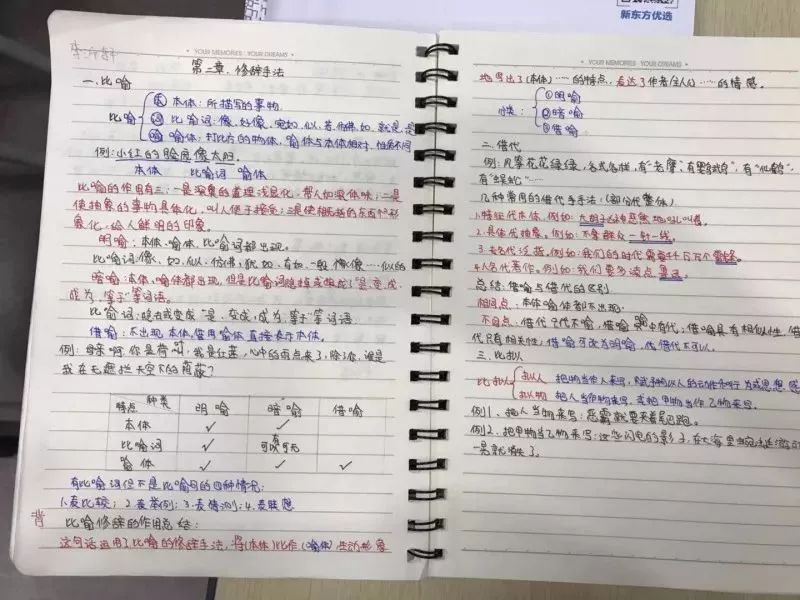 新东方优选
YOUR MEMORIES · YOUR DREAMS
第二章、修辞手法
一.比喻
比喻
本体：所描写的事物.
比喻词：像、好像、宛如、似、若、仿佛、如、就是、是
喻体：打比方的物体，喻体与本体相对，性质不同
例：小红的脸庞像太阳.
本体 比喻词 喻体
比喻的作用有三：一是深奥的道理浅显化，帮人加深体味；二是
使抽象的事物具体化，叫人便于接受；三是使概括的东西形
象化，给人鲜明的印象。
明喻：本体、喻体、比喻词都出现。
比喻词：像、如、似、仿佛、犹如、有如、一般
暗喻：本体、喻体都出现，但是比喻词
成为、等于"等词语。
比喻词：或变成"是、变成、成为、等于"等词语
借喻：不出现本体，借用喻体直接表示本体。
例：母亲啊！你是荷叶，我是红莲，心中的雨点来了，除了你，谁是
我在无遮拦天空下的荫蔽？
特点 种类 明喻 暗喻 借喻
本体 ✓ ✓
比喻词 ✓ 可有可无
喻体 ✓ ✓ ✓
有比喻词但不是比喻句的四种情况：
1.表比较；2.表举例；3.表猜测；4.表联想
背
比喻修辞的作用总结：
这句话运用了比喻的修辞手法，将(本体)比作(喻体)生动形象
YOUR MEMORIES · YOUR DREAMS
地写出了(本体)……的特点，表达了作者(主人公)……的情感。
分类：
①明喻
②暗喻
③借喻
二.借代
例：凡草花花绿绿，各式各样，有"老
有"绿
几种常用的借代手法：(部分代整体)
1.特征代本体，例如：大胡子
2.具体代抽象，例如：不拿群众一针一线。
3.专名代泛称，例如：我们的时代需要千千万万个雷锋
4.人名代著作，例如：我们要多读点鲁迅。
总结：借喻与借代的区别
相同点：本体喻体都不出现.
不同点：借代 代不喻，借喻喻中有代；借喻具有相似性，借
代只有相关性；借喻可改为明喻，但借代不可以。
三.比拟
比拟
拟人 把物当作人来写，赋予物以人的动作和行为或思想感
拟物 把人当作物来写，或把甲物当作乙物来写.
例1、把人当物来写：恶霸就夹着尾巴跑。
例2、把甲物当乙物来写：这些闪电的影子，在大海里蜿蜒游动
一晃就消失了.